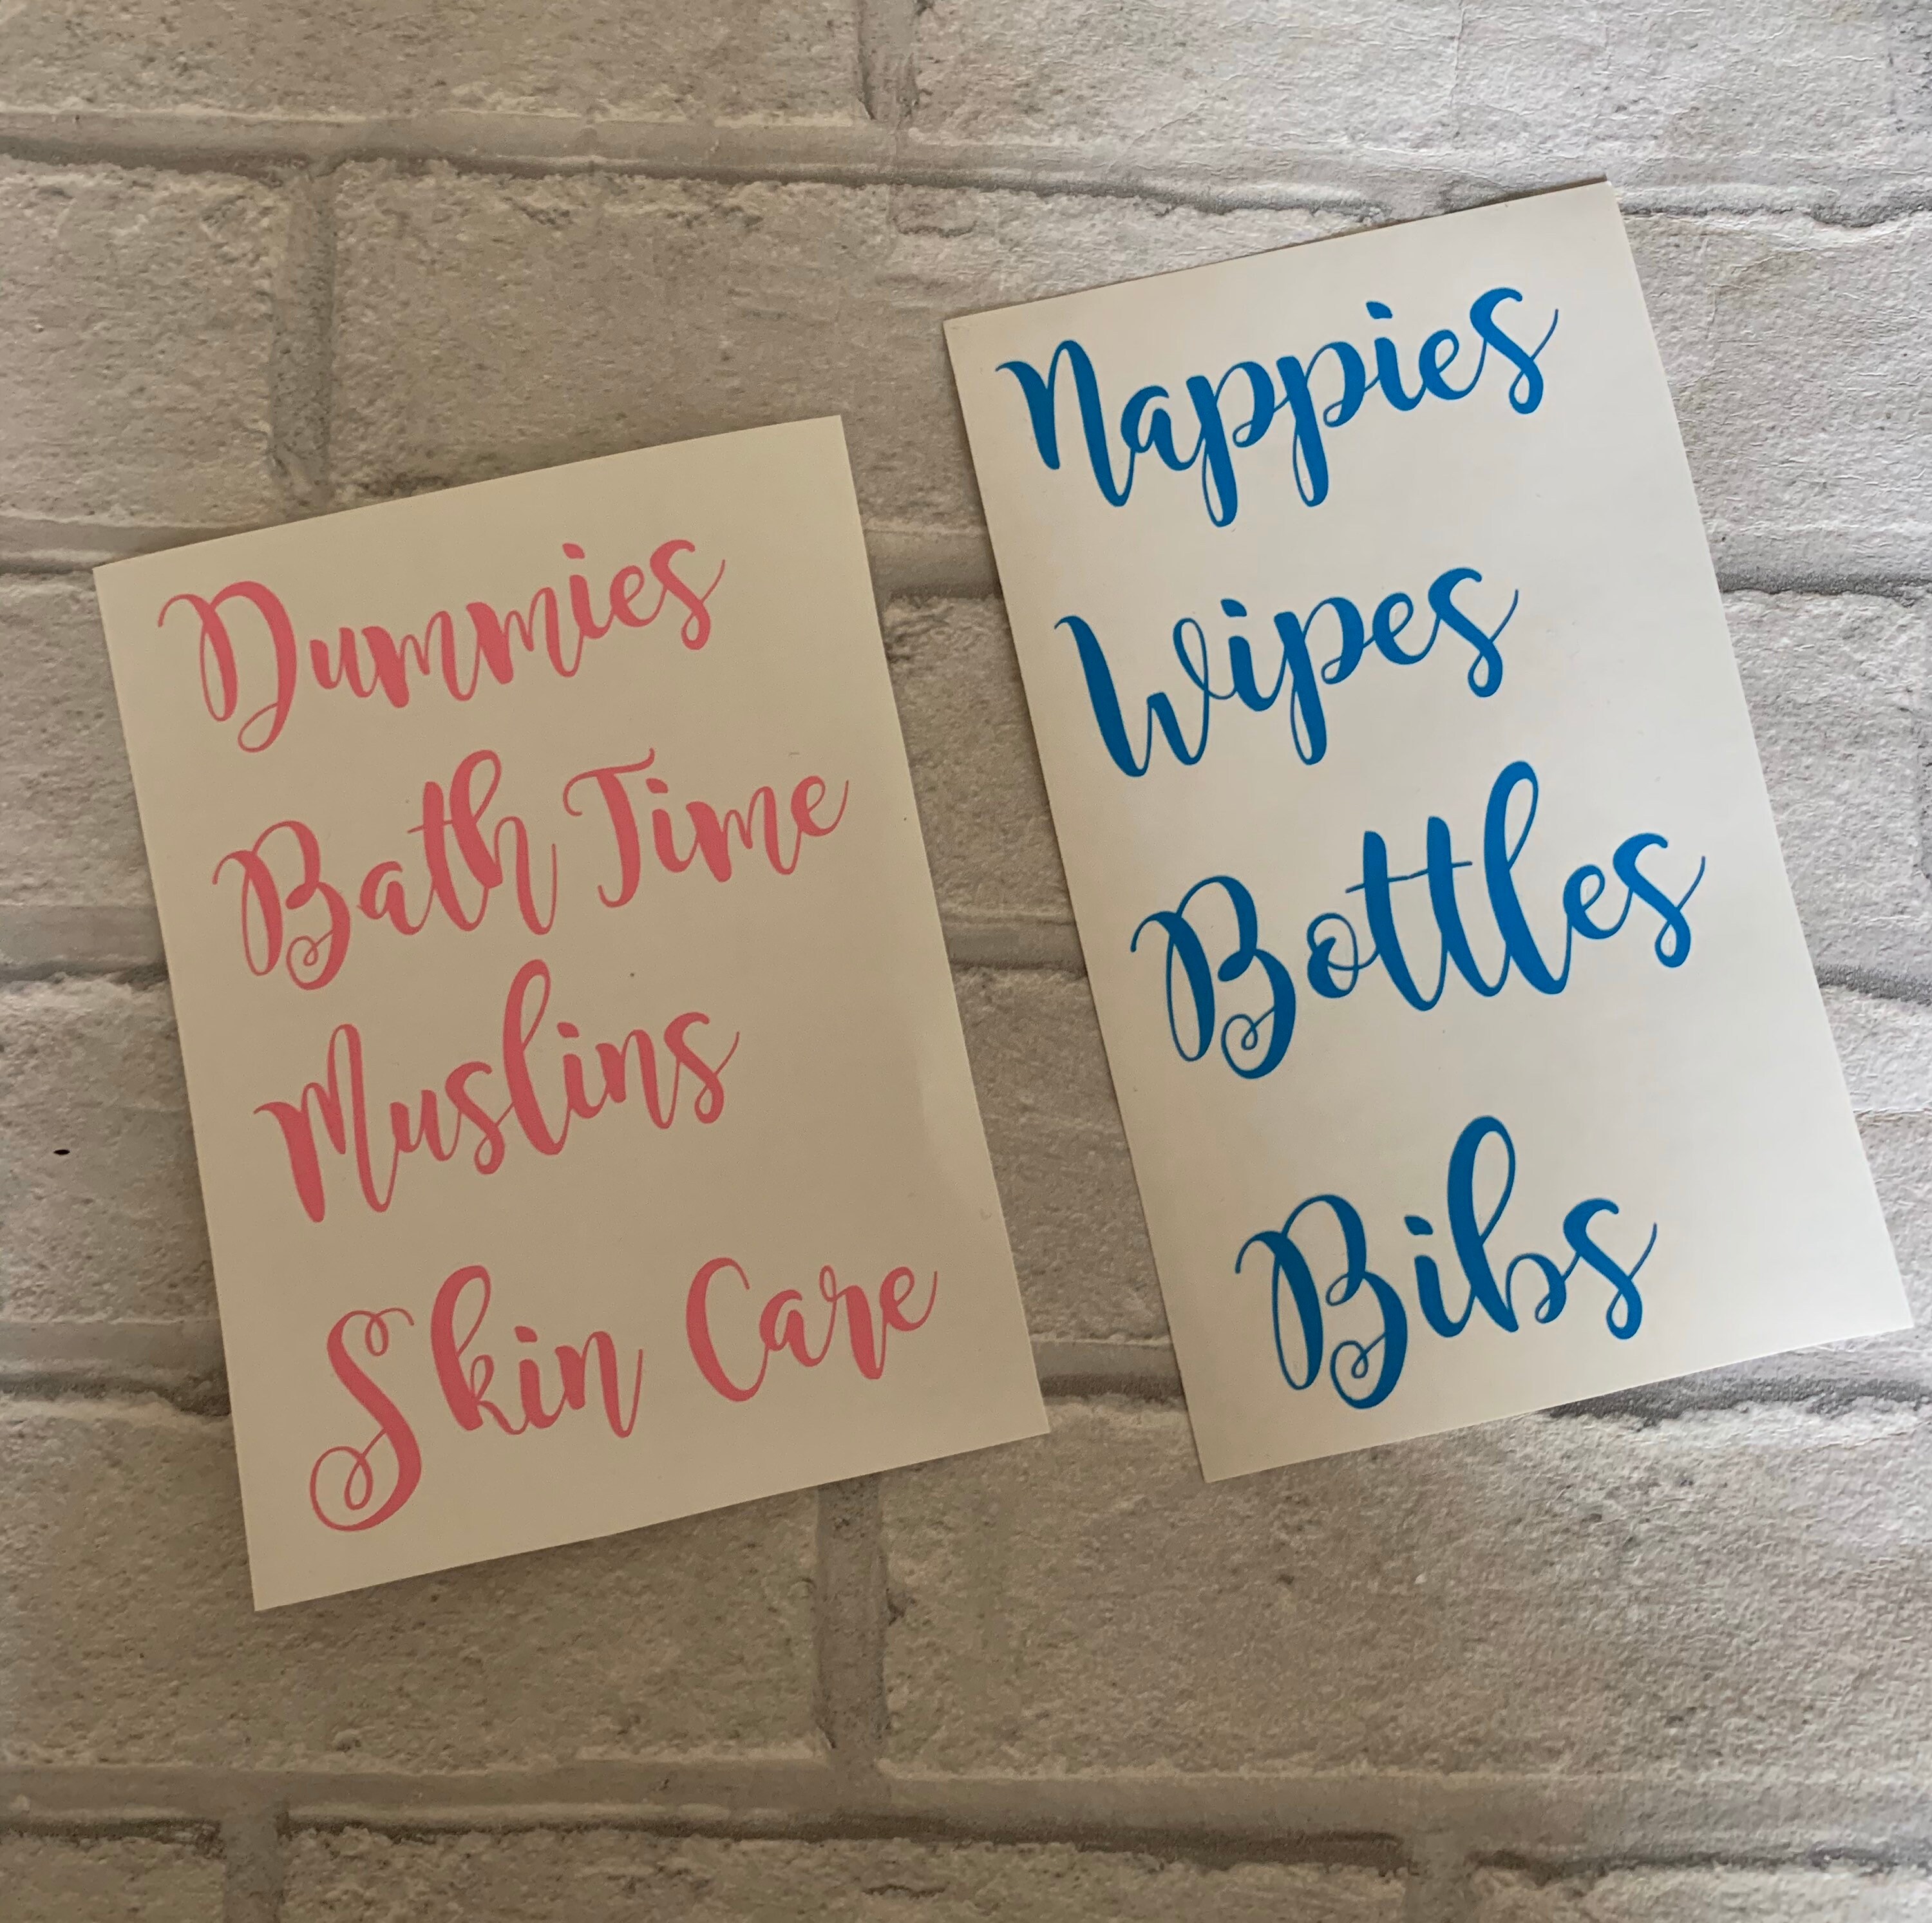 Dummies
Bath Time
Muslins
Skin Care
Nappies
Wipes
Bottles
Bibs